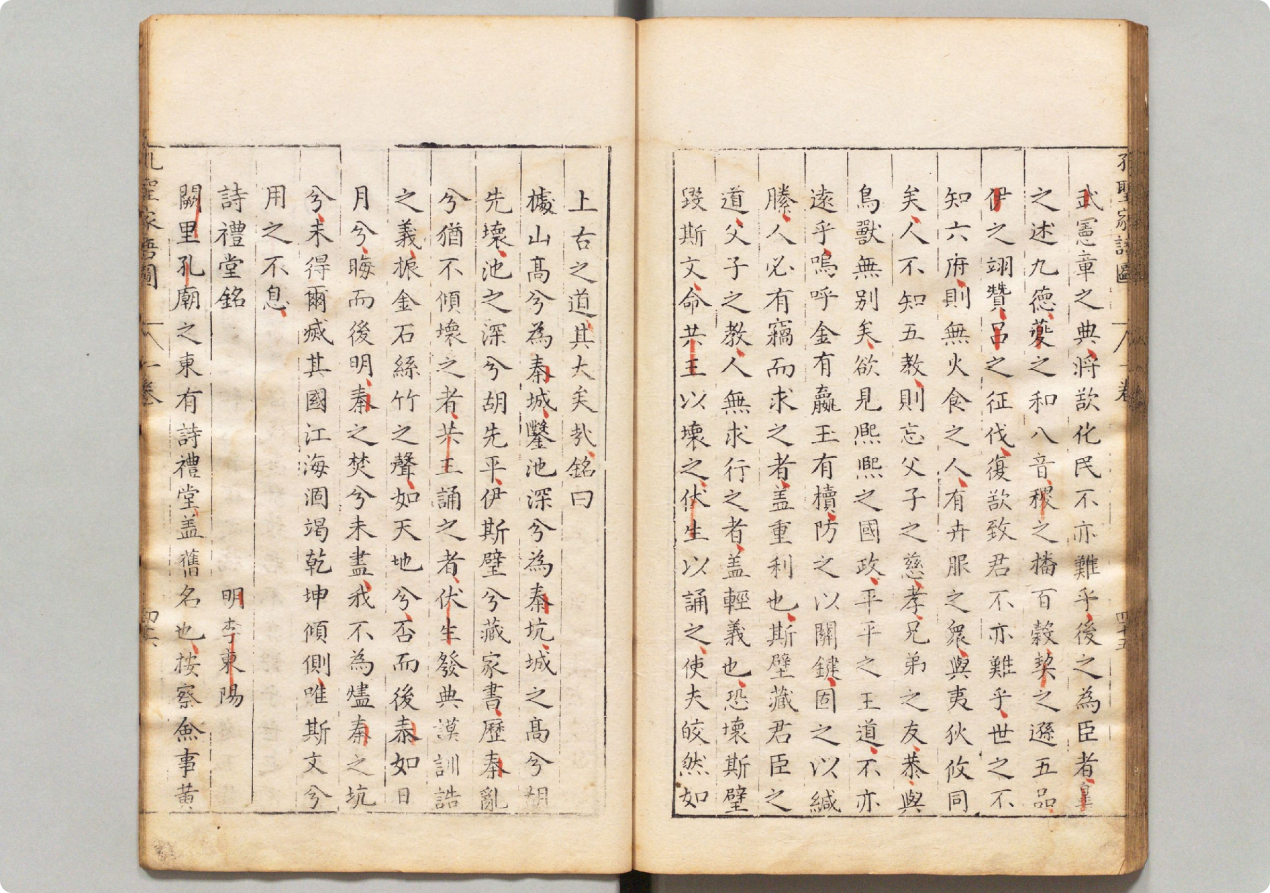 孔聖家語圖 卷一 四十五
武憲章之典將欲化民不亦難乎後之為臣者皇
之述九德夔之和八音稷之播百穀契之遜五品
伊之翊贊呂之征伐復欲致君不亦難乎世之不
知六府則無火食之人有卉服之衆與夷狄攸同
矣人不知五教則忘父子之慈孝兄弟之友恭與
鳥獸無别矣欲見熈熈之國政平平之王道不亦
遠乎嗚呼金有籯玉有櫝防之以關鍵固之以緘
縢人必有竊而求之者盖重利也斯壁藏君臣之
道父子之教人無求行之者盖輕義也恐壞斯壁
毀斯文命共王以壞之伏生以誦之使夫皎然如
上古之道其大矣㢤銘曰
㯫山髙兮為秦城鑿池深兮為秦坑城之髙兮胡
先壞池之深兮胡先平伊斯壁兮藏家書歷秦亂
兮猶不傾壞之者共王誦之者伏生發典謨訓誥
之義振金石絲竹之聲如天地兮否而後泰如日
月兮晦而後明秦之焚兮未盡我不為燼秦之坑
兮未得爾㓕其國江海涸竭乾坤傾側唯斯文兮
用之不息
詩禮堂銘 明李東陽
闕里孔廟之東有詩禮堂盖舊名也按察僉事黄
孔聖家語圖 卷一